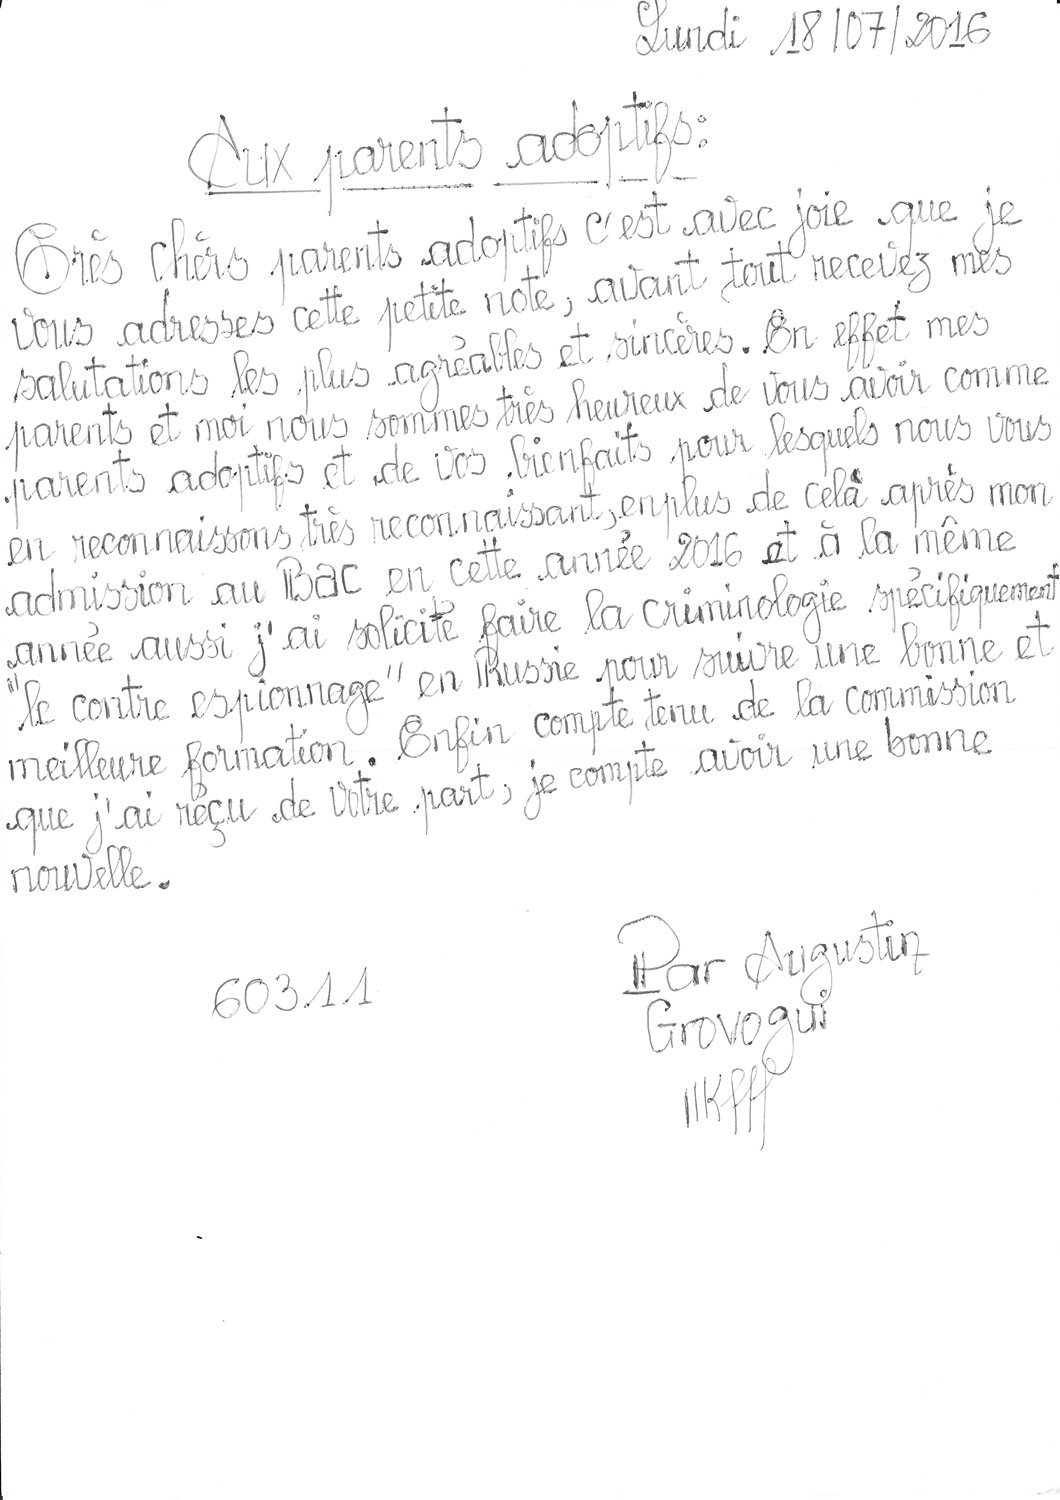 Lundi 18/07/2016
Aux parents adoptifs:
Très chèrs parents adoptifs c'est avec joie que je
vous adresses cette petite note, avant tout recevez mes
salutations les plus agréables et sincères. En effet mes
parents et moi nous sommes très heureux de vous avoir comme
parents adoptifs et de vos bienfaits pour lesquels nous vous
en reconnaissons très reconnaissant, enplus de celà après mon
admission au BAC en cette année 2016 et à la même
année aussi j'ai solicité faire la criminologie spécifiquement
"le contre espionnage" en Russie pour suivre une bonne et
meilleure formation. Enfin compte tenu de la commission
que j'ai réçu de votre part, je compte avoir une bonne
nouvelle.
60311
Par Augustin
Grovogui